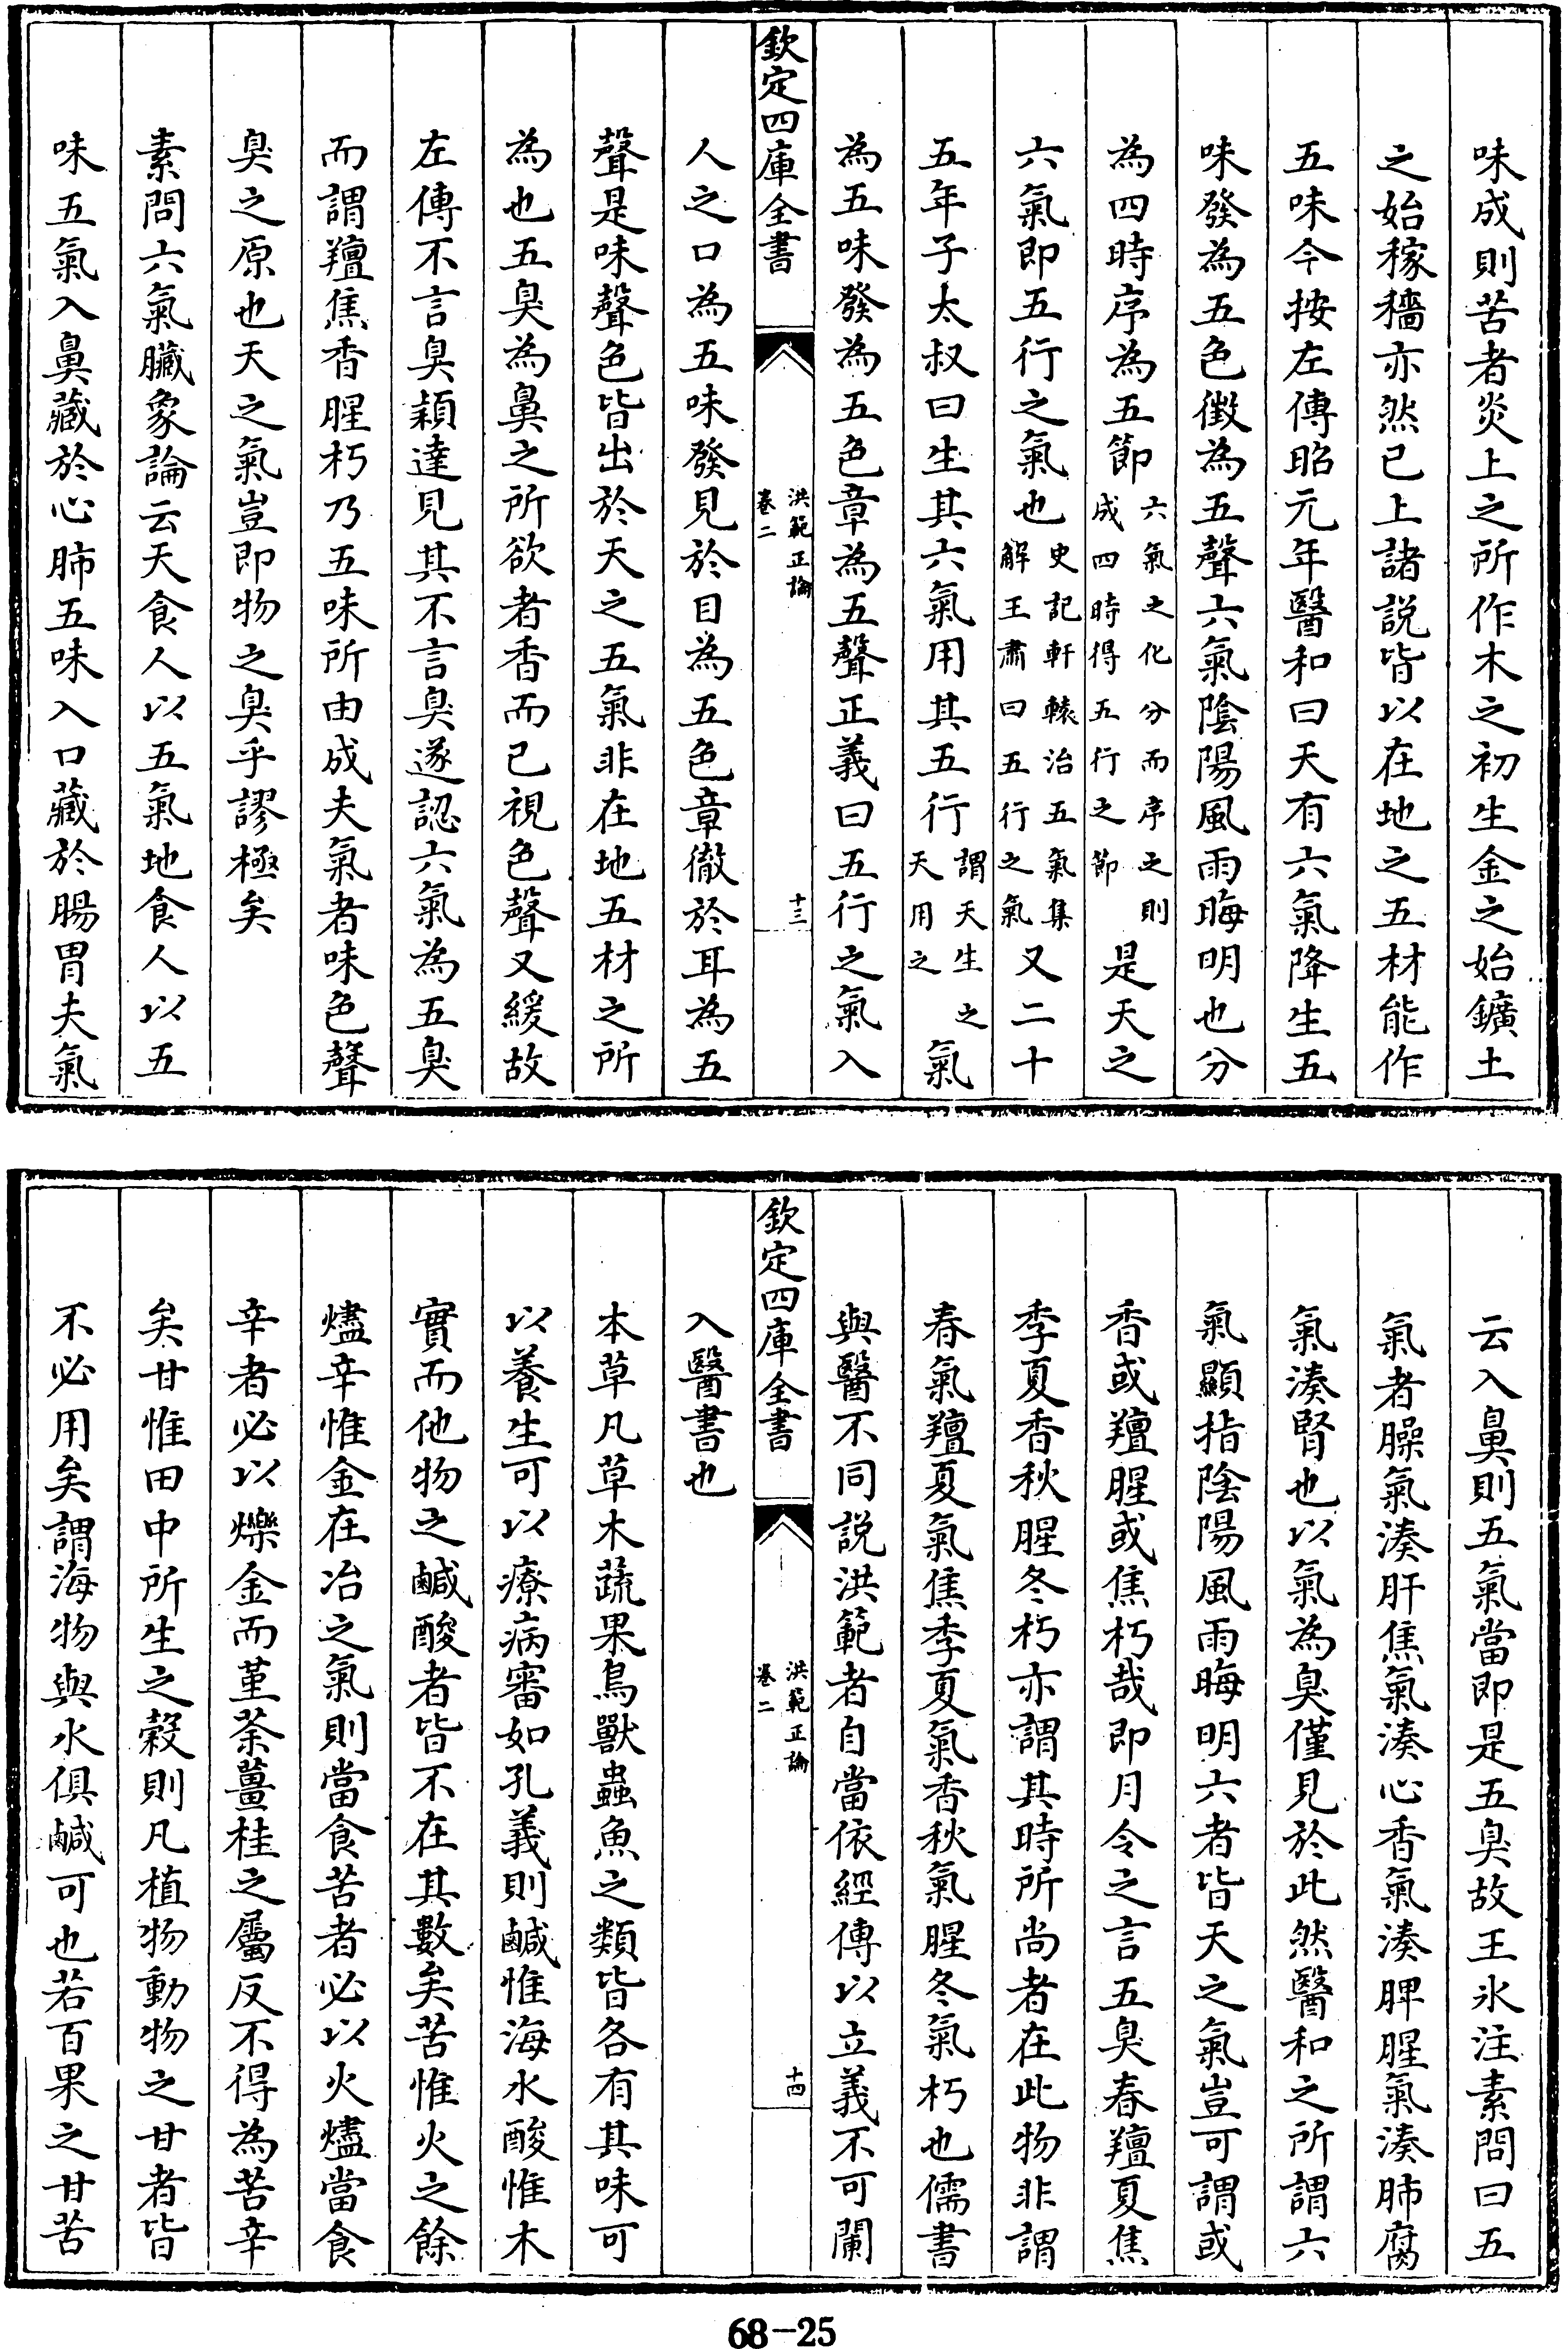 味成則苦者炎上之所作木之初生金之始鑛土
之始稼穡亦然已上諸説皆以在地之五材能作
五味今按左傳昭元年醫和曰天有六氣降生五
味發為五色徴為五聲六氣陰陽風雨晦明也分
為四時序為五節六氣之化分而序之則成四時得五行之節是天之
六氣即五行之氣也史記軒轅治五氣集解王肅曰五行之氣又二十
五年子太叔曰生其六氣用其五行謂天生之天用之氣
為五味發為五色章為五聲正義曰五行之氣入
欽定四庫全書
洪範正論
卷二
十三
人之口為五味發見於目為五色章徹於耳為五
聲是味聲色皆出於天之五氣非在地五材之所
為也五臭為鼻之所欲者香而已視色聲又緩故
左傳不言臭穎達見其不言臭遂認六氣為五臭
而謂羶焦香腥朽乃五味所由成夫氣者味色聲
臭之原也天之氣豈即物之臭乎謬極矣
素問六氣臟象論云天食人以五氣地食人以五
味五氣入鼻藏於心肺五味入口藏於腸胃夫氣
云入鼻則五氣當即是五臭故王氷注素問曰五
氣者臊氣湊肝焦氣湊心香氣湊脾腥氣湊肺腐
氣湊腎也以氣為臭僅見於此然醫和之所謂六
氣顯指陰陽風雨晦明六者皆天之氣豈可謂或
香或羶腥或焦朽哉即月令之言五臭春羶夏焦
季夏香秋腥冬朽亦謂其時所尚者在此物非謂
春氣羶夏氣焦季夏氣香秋氣腥冬氣朽也儒書
與醫不同説洪範者自當依經傳以立義不可闌
欽定四庫全書
洪範正論
卷二
十四
入醫書也
本草凡草木蔬果鳥獸蟲魚之類皆各有其味可
以養生可以療病審如孔義則鹹惟海水酸惟木
實而他物之鹹酸者皆不在其數矣苦惟火之餘
燼辛惟金在冶之氣則當食苦者必以火燼當食
辛者必以爍金而堇荼薑桂之屬反不得為苦辛
矣甘惟田中所生之穀則凡植物動物之甘者皆
不必用矣謂海物與水俱鹹可也若百果之甘苦
68-25